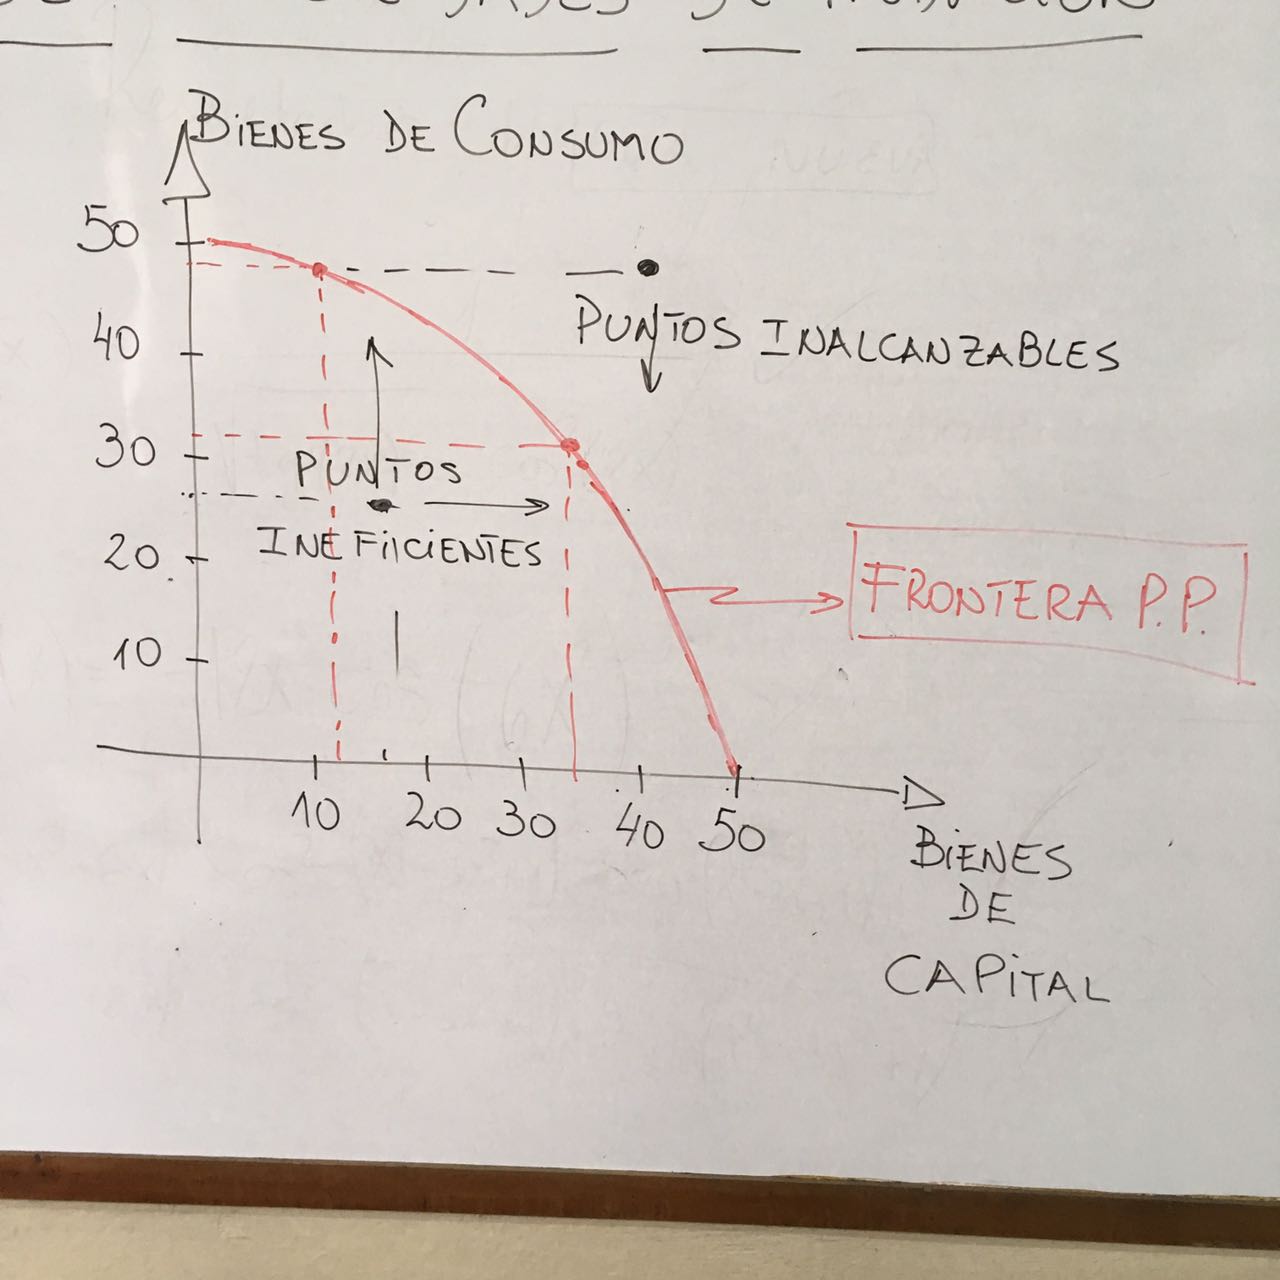 DE
BIENES DE CONSUMO
50
40
PUNTOS INALCANZABLES
30
PUNTOS
INEFIICIENTES
20
FRONTERA P.P.
10
10 20 30 40 50
BIENES
DE
CAPITAL